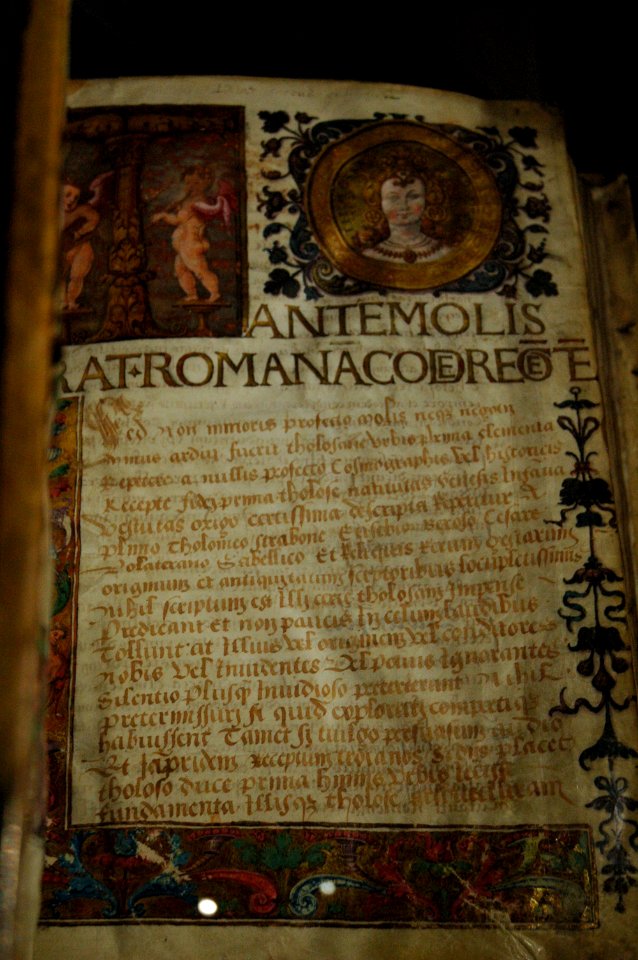 TANTEMOLIS
RAT·ROMANACODEREGETE
Sed non minoris profecto molis neq3 negocii
minus ardui fuerit tholosane Urbis prima elementa
Repetere a nullis profecto Cosmographis Vel historicis
Recepte sed prima tholose natiuitas
Vestutas origo certissima descripta reperitur
plinio tholomeo strabone Eusebio beroso Cesare
Volaterano Sabellico Et Reliquis rerum gestarum
originum et antiquitatum scriptoribus locupletissimis
Nihil scriptum est Illi certe tholosam Impense
Predicant et non paucis In celum laudibus
Tollunt at Illius vel originem vel conditores
nobis Vel Inuidentes Vel potius Ignorantes
Silentio plusq3 Inuidioso preterierant Nihil
pretermissuri si quid explorati compertiq3
habuissent Tamet si uulgo persuasum
Et Iampridem receptum placet
tholoso duce prima huius Urbis Iecisse
fundamenta Illisq3 tholose